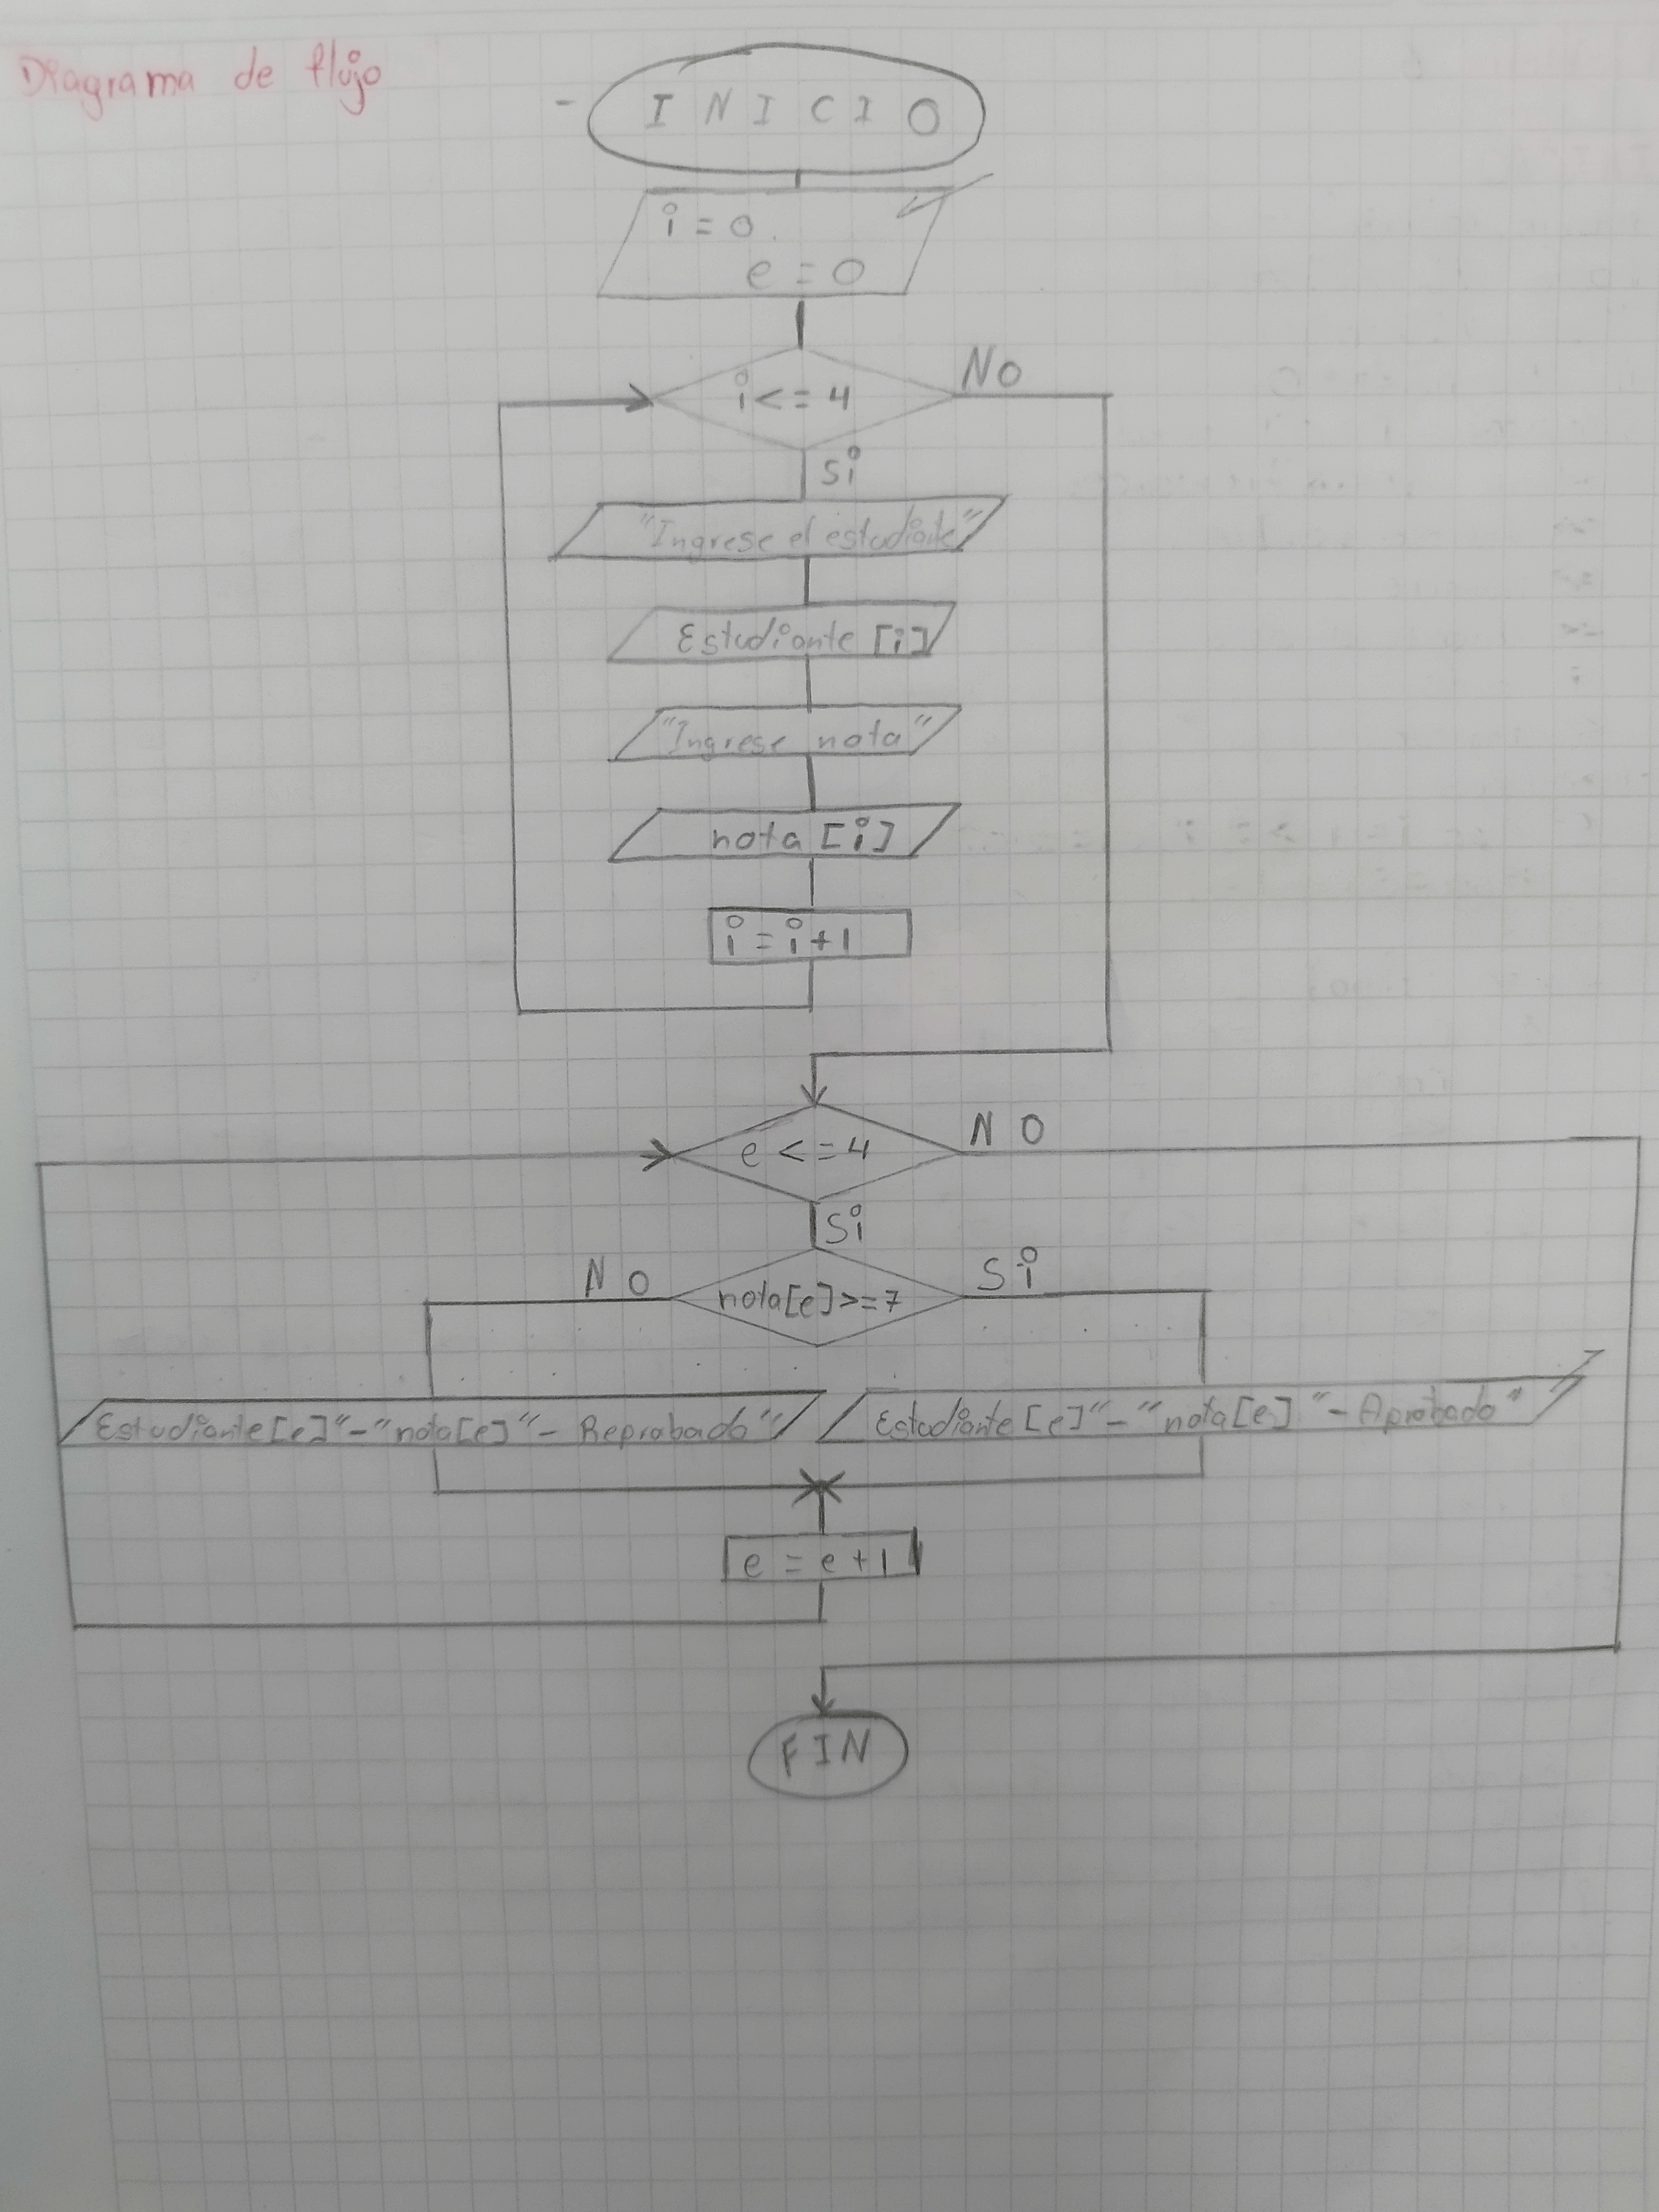 Diagrama de flujo
- INICIO
i = 0
e = 0
i <= 4
NO
Si
"Ingrese el estudiante"
Estudiante [i]
"Ingrese nota"
nota [i]
i = i + 1
e <= 4
NO
Si
nota[e] >= 7
NO
Si
Estudiante[e]"-"nota[e]"- Reprobado"
Estudiante [e]"-"nota[e] "- Aprobado"
e = e + 1
FIN